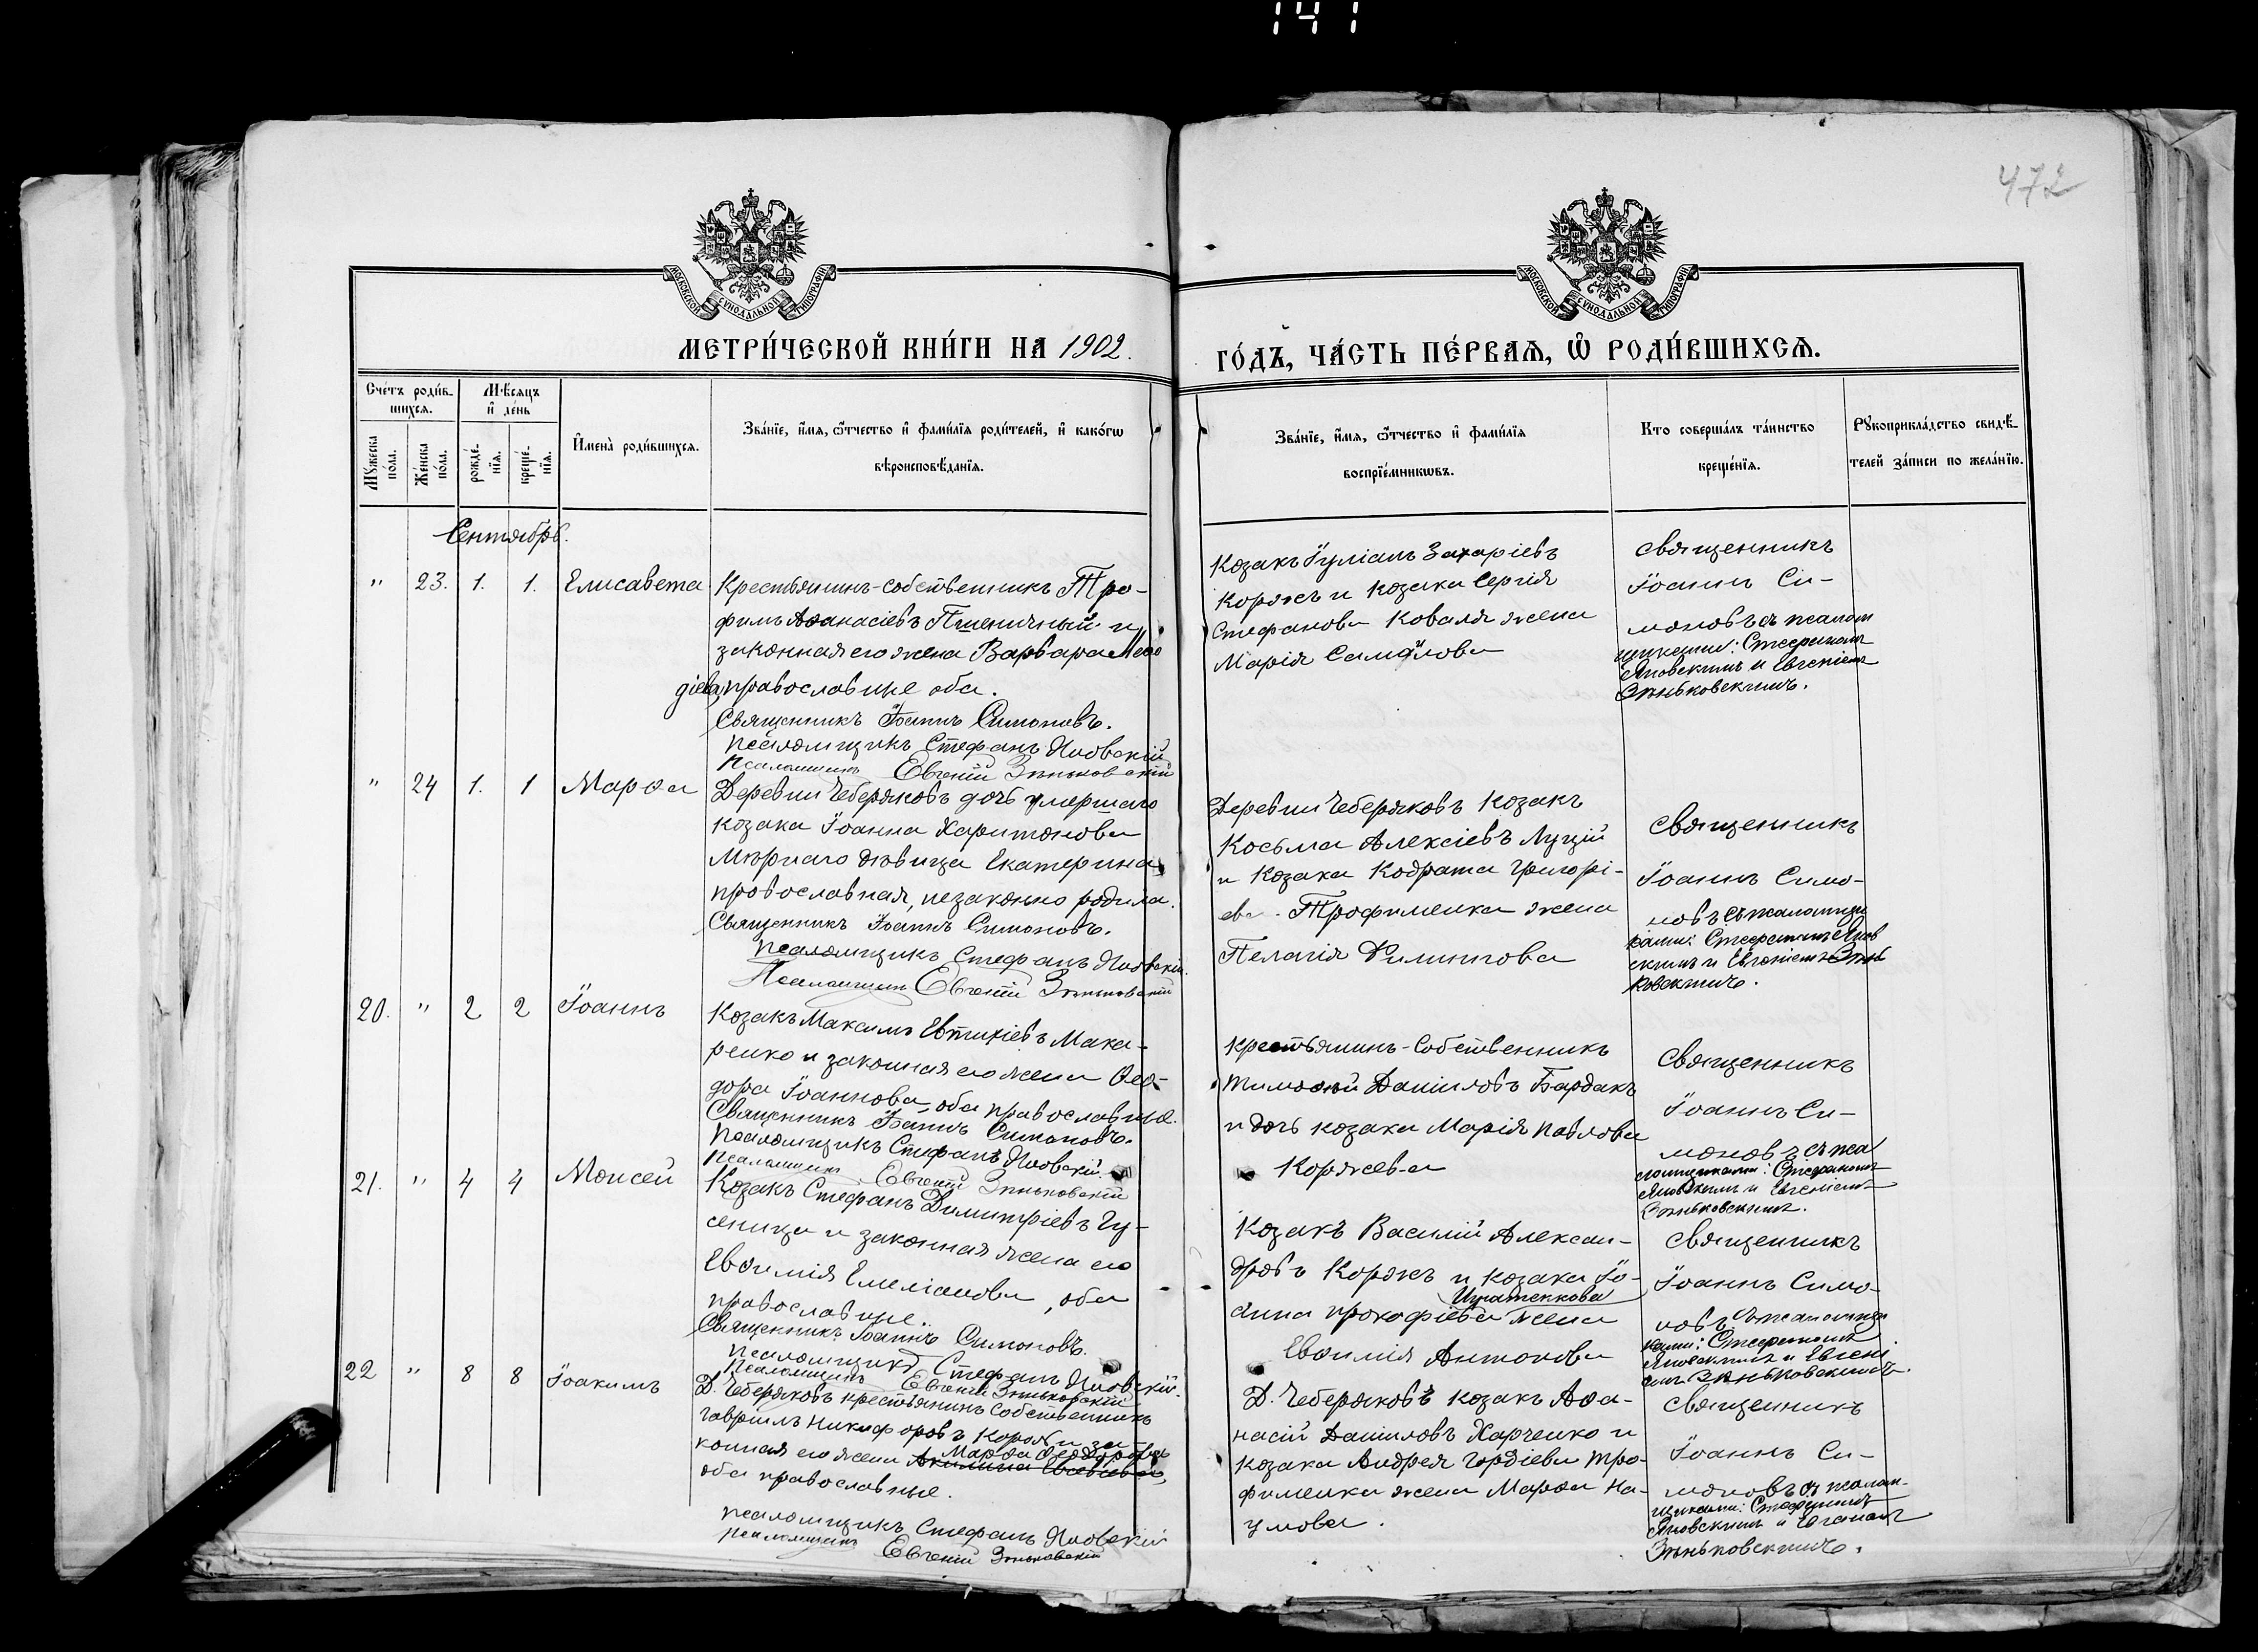 141
472
МОСКОВСКОЙ СѴНОДАЛЬНОЙ ТИПОГРАФІИ
МОСКОВСКОЙ СѴНОДАЛЬНОЙ ТИПОГРАФІИ
МЕТРИ́ЧЕСКОЙ КНИ́ГИ НА 1902.
ГО́ДЪ, ЧА́СТЬ ПЕ́РВАѦ, Ѽ РОДИ́ВШИХСѦ.
Сче́тъ роди́в-
шихсѧ.
Мꙋ́жеска
по́ла.
Же́нска
по́ла.
Мѣ́сѧцъ
и҆ де́нь
рожде́-
нїѧ.
креще́-
нїѧ.
И҆мена̀ роди́вшихсѧ.
Зва́нїе, и҆́мѧ, ѻ҆́тчество и҆ фами́лїѧ роди́телей, и҆ како́гѡ
вѣроисповѣ́данїѧ.
Зва́нїе, и҆́мѧ, ѻ҆́тчество и҆ фами́лїѧ
воспрїе́мникѡвъ.
Кто соверша́лъ та́инство
креще́нїѧ.
Рꙋкоприкла́дство свидѣ́-
телей за́писи по жела́нїю.
Сентябрь.
" 23. 1. 1. Елисавета
Крестьянинъ-собственникъ Тро-
фимъ Аѳанасіевъ Пшеничный и
законная его жена Варвара Меѳо
діева, православные оба.
Священникъ Іоаннъ Симоновъ.
Псаломщикъ Стефанъ Яновскій
Псаломщикъ Евгеній Зѣньковскій
Козакъ Іуліанъ Захаріевъ
Коржъ и козака Сергія
Стефанова Коваля жена
Марія Самойлова
Священникъ
Іоаннъ Си-
моновъ съ псалом
щиками: Стефаномъ
Яновскимъ и Евгеніемъ
Зѣньковскимъ.
" 24 1. 1 Марѳа
Деревни Чеберяковъ дочь умершаго
козака Іоанна Харитонова
Мѣрнаго дѣвица Екатерина,
православная, незаконно родила.
Священникъ Іоаннъ Симоновъ.
Псаломщикъ Стефанъ Яновскій.
Псаломщикъ Евгеній Зѣньковскій
Деревни Чеберяковъ козакъ
Косьма Алексіевъ Луцій
и козака Кодрата Григорі-
ева Трофименка жена
Пелагія Филиппова
Священникъ
Іоаннъ Симо-
новъ съ псаломщи
ками: Стефаномъ Янов
скимъ и Евгеніемъ Зѣнь
ковскимъ.
20. " 2 2 Іоаннъ
Козакъ Максимъ Евтихіевъ Мака-
ренко и законная его жена Ѳео-
дора Іоаннова, оба православные.
Священникъ Іоаннъ Симоновъ.
Псаломщикъ Стефанъ Яновскій.
Псаломщикъ Евгеній Зѣньковскій
Крестьянинъ-собственникъ
Тимоѳей Даніиловъ Бардакъ
и дочь козака Марія Павлова
Коржева
Священникъ
Іоаннъ Си-
моновъ съ пса
ломщиками: Стефаномъ
Яновскимъ и Евгеніемъ
Зѣньковскимъ.
21. " 4 4 Моисей
Козакъ Стефанъ Димитріевъ Гу-
сеница и законная жена его
Евѳимія Емеліанова, оба
православные.
Священникъ Іоаннъ Симоновъ.
Псаломщикъ Стефанъ Яновскій.
Псаломщикъ Евгеній Зѣньковскій
Козакъ Василій Алексан-
дровъ Коржъ и козака Іо-
анна Прокофіева жена
Евѳимія Антонова
Священникъ
Іоаннъ Симо-
новъ съ псаломщи
ками: Стефаномъ
Яновскимъ и Евгені
емъ Зѣньковскимъ.
22 " 8 8 Іоакимъ
Д. Чеберяковъ крестьянинъ собственникъ
Гавріилъ Никифоровъ и за-
Марѳа Ѳеодорова
конная его жена Акилина
оба православные.
Псаломщикъ Стефанъ Яновскій
Псаломщикъ Евгеній Зѣньковскій
Д. Чеберяковъ козакъ Аѳа-
насій Даніиловъ Харченко и
козака Андрея Гордіева Тро-
фименка жена Марѳа На-
умова.
Священникъ
Іоаннъ Си-
моновъ съ псалом-
щиками: Стефаномъ
Яновскимъ и Евгеніемъ
Зѣньковскимъ.